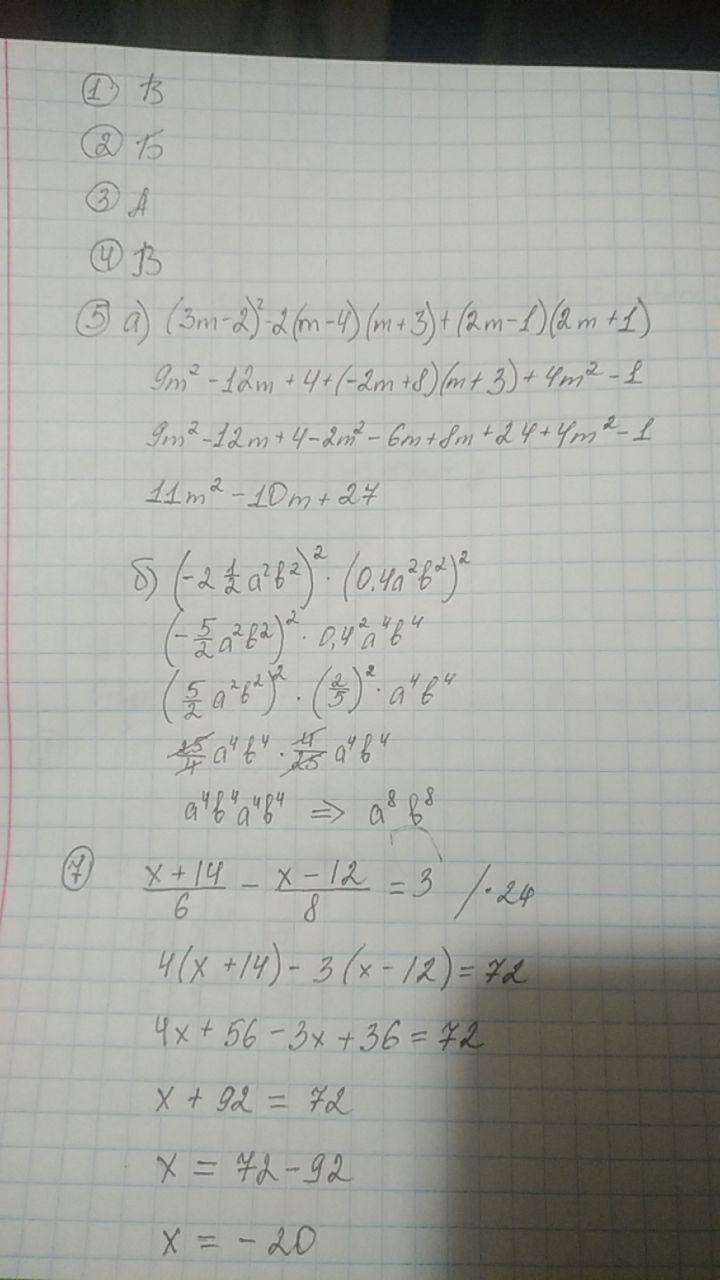 ① В
② Б
③ А
④ В
⑤ а) (3m-2)²-2(m-4)(m+3)+(2m-1)(2m+1)
9m²-12m+4+(-2m+8)(m+3)+4m²-1
9m²-12m+4-2m²-6m+8m+24+4m²-1
11m²-10m+27
б) (-2 1/2 a²b²)² · (0,4a²b²)²
(-5/2 a²b²)² · 0,4²a⁴b⁴
(5/2 a²b²)² · (2/5)² · a⁴b⁴
25/4 a⁴b⁴ · 4/25 a⁴b⁴
a⁴b⁴a⁴b⁴ => a⁸b⁸
⑦ (x+14)/6 - (x-12)/8 = 3 /·24
4(x+14)-3(x-12)=72
4x+56-3x+36=72
x+92=72
x=72-92
x=-20